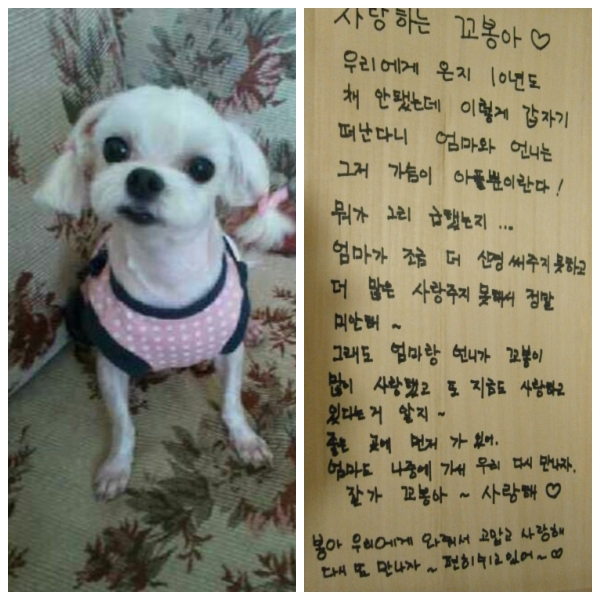 사랑하는 꼬봉아♡
우리에게 온지 10년도
채 안됐는데 이렇게 갑자기
떠난다니 엄마와 언니는
그저 가슴이 아플뿐이란다!
뭐가 그리 급했는지...
엄마가 조금 더 신경써주지못하고
더 많은 사랑주지 못해서 정말
미안해~
그래도 엄마랑 언니가 꼬봉이
많이 사랑했고 또 지금도 사랑하고
있다는거 알지~
좋은 곳에 먼저 가 있어.
엄마도 나중에 가서 우리 다시 만나자.
잘가 꼬봉아~ 사랑해♡
봉아 우리에게 와줘서 고맙고 사랑해
다시 또 만나자~ 편히쉬고있어~♡